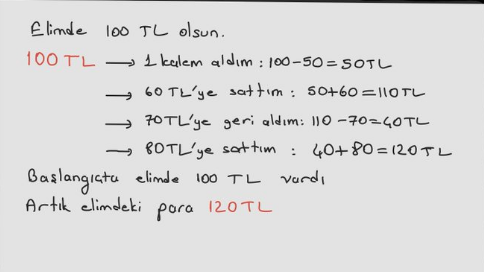 Elimde 100 TL olsun.
100 TL → 1 kalem aldım : 100-50 = 50TL
→ 60 TL'ye sattım : 50+60 = 110TL
→ 70TL'ye geri aldım: 110-70=40TL
→ 80TL'ye sattım : 40+80=120TL
Başlangıçta elimde 100 TL vardı
Artık elimdeki para 120TL